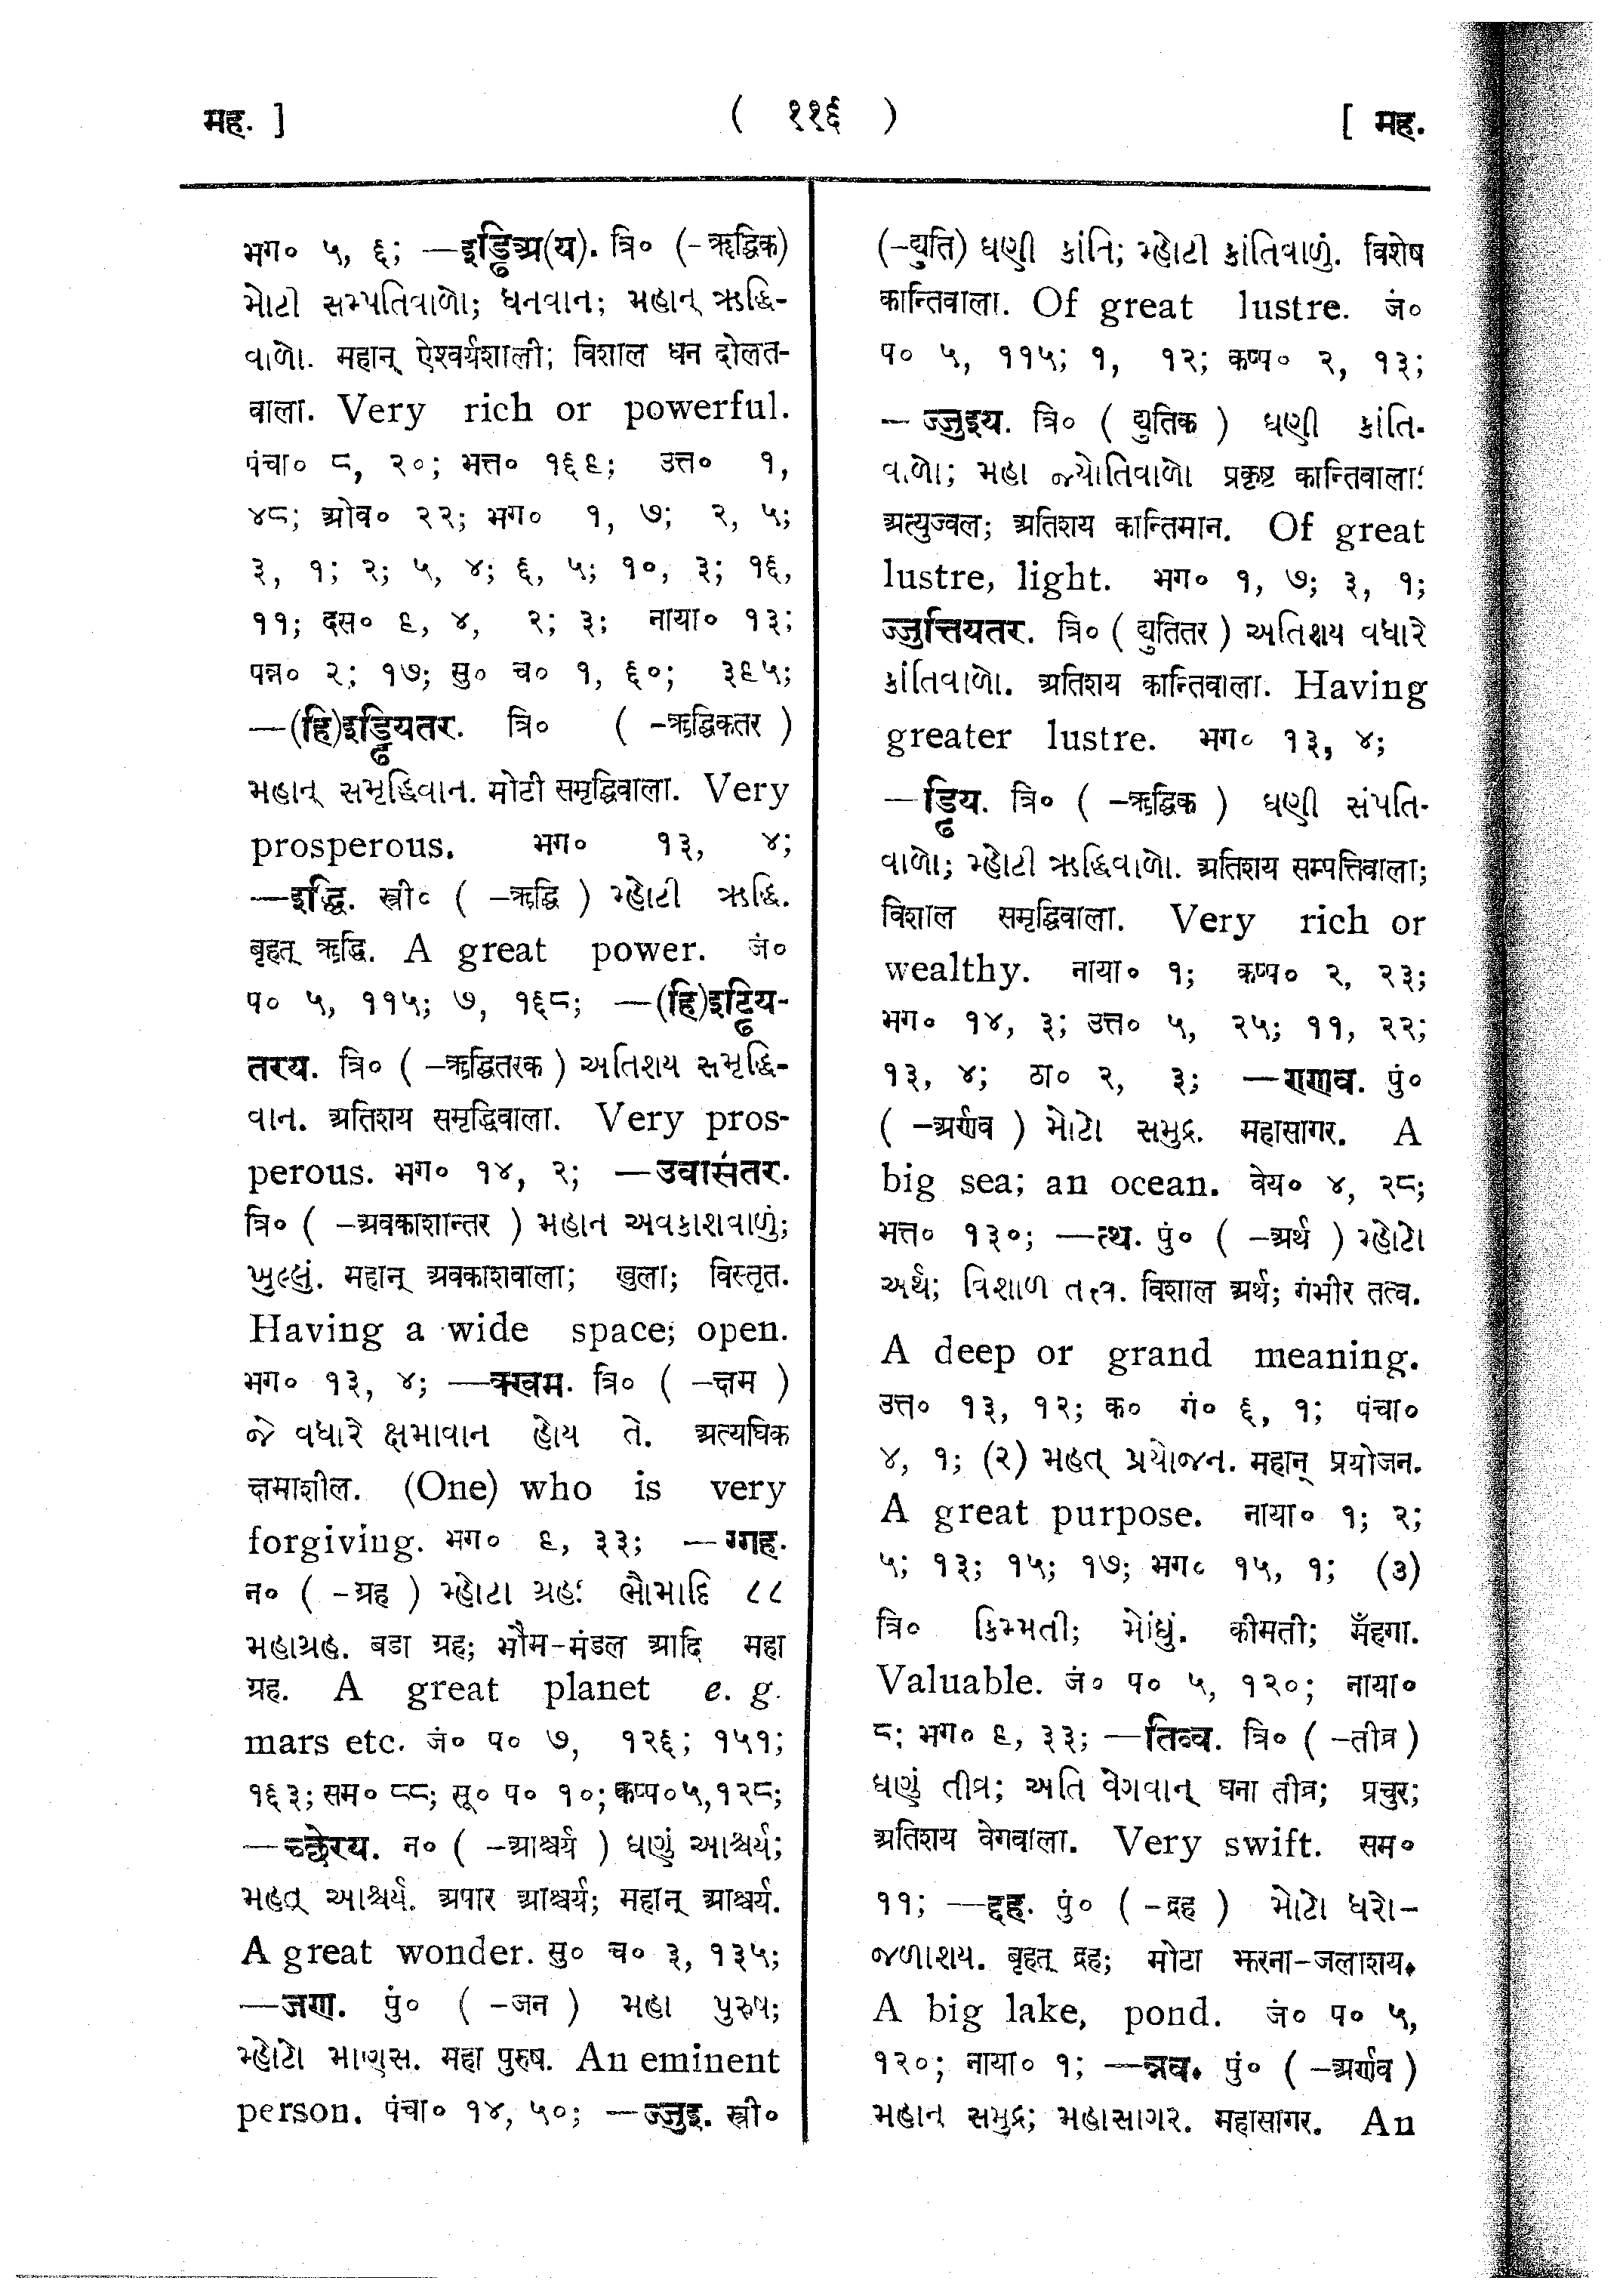 मह. ]
( ११६ )
[ मह.
भग० ५, ६; —इड्ढिअ(य). त्रि० (-ऋद्धिक)
મોટી સમ્પતિવાળો; ધનવાન; મહાન્ ઋદ્ધિ-
વાળો. महान् ऐश्वर्यशाली; विशाल धन दोलत-
वाला. Very rich or powerful.
पंचा० ८, २०; भत्त० १६९; उत्त० १,
४८; ओव० २२; भग० १, ७; २, ५;
३, १; २; ५, ४; ६, ५; १०, ३; १६,
११; दस० ९, ४, २; ३; नाया० १३;
पन्न० २; १७; सु० च० १, ६०; ३९५;
—(हि)इड्ढियतर. त्रि० ( -ऋद्धिकतर )
મહાન્ સમૃદ્ધિવાન. मोटी समृद्धिवाला. Very
prosperous. भग० १३, ४;
—इद्धि. स्त्री० ( -ऋद्धि ) મ્હોટી ઋદ્ધિ.
बृहत् ऋद्धि. A great power. जं०
प० ५, ११५; ७, १६८; —(हि)इट्ढिय-
तरय. त्रि० ( -ऋद्धितरक ) અતિશય સમૃદ્ધિ-
વાન. अतिशय समृद्धिवाला. Very pros-
perous. भग० १४, २; —उवासंतर.
त्रि० ( -अवकाशान्तर ) મહાન અવકાશવાળું;
ખુલ્લું. महान् अवकाशवाला; खुला; विस्तृत.
Having a wide space; open.
भग० १३, ४; —क्खम. त्रि० ( -क्षम )
જે વધારે ક્ષમાવાન હોય તે. अत्यधिक
क्षमाशील. (One) who is very
forgiving. भग० ९, ३३; —ग्गह.
न० ( -ग्रह ) મ્હોટા ગ્રહ: ભૌમાદિ ૮૮
મહાગ્રહ. बडा ग्रह; भौम-मंडल आदि महा
ग्रह. A great planet e. g.
mars etc. जं० प० ७, १२६; १५१;
१६३; सम० ८८; सू० प० १०; कप्प० ५, १२८;
—च्छेरय. न० ( -आश्चर्य ) ઘણું આશ્ચર્ય;
મહત્ આશ્ચર્ય. अपार आश्चर्य; महान् आश्चर्य.
A great wonder. सु० च० ३, १३५;
—जण. पुं० ( -जन ) મહા પુરુષ;
મ્હોટો માણસ. महा पुरुष. An eminent
person. पंचा० १४, ५०; —ज्जुइ. स्त्री०
(-द्युति) ઘણી કાંતિ; મ્હોટી કાંતિવાળું. विशेष
कान्तिवाला. Of great lustre. जं०
प० ५, ११५; १, १२; कप्प० २, १३;
—ज्जुइय. त्रि० ( द्युतिक ) ઘણી કાંતિ-
વાળો; મહા જ્યોતિવાળો प्रकृष्ट कान्तिवाला:
अत्युज्वल; अतिशय कान्तिमान. Of great
lustre, light. भग० १, ७; ३, १;
ज्जुत्तियतर. त्रि० ( द्युतितर ) અતિશય વધારે
કાંતિવાળો. अतिशय कान्तिवाला. Having
greater lustre. भग० १३, ४;
—ड्ढिय. त्रि० ( -ऋद्धिक ) ઘણી સંપતિ-
વાળો; મ્હોટી ઋદ્ધિવાળો. अतिशय सम्पत्तिवाला;
विशाल समृद्धिवाला. Very rich or
wealthy. नाया० १; कप्प० २, २३;
भग० १४, ३; उत्त० ५, २५; ११, २२;
१३, ४; ठा० २, ३; —ण्णव. पुं०
( -अर्णव ) મોટો સમુદ્ર. महासागर. A
big sea; an ocean. वेय० ४, २८;
भत्त० १३०; —त्थ. पुं० ( -अर्थ ) મ્હોટો
અર્થ; વિશાળ તત્ત્વ. विशाल अर्थ; गंभीर तत्व.
A deep or grand meaning.
उत्त० १३, १२; क० गं० ६, १; पंचा०
४, १; (२) મહત્ પ્રયોજન. महान् प्रयोजन.
A great purpose. नाया० १; २;
५; १३; १५; १७; भग० १५, १; (૩)
त्रि० કિમ્મતી; મોંઘું. कीमती; मँहगा.
Valuable. जं० प० ५, १२०; नाया०
८; भग० ९, ३३; —तिव्व. त्रि० ( -तीव्र )
ઘણું તીવ્ર; અતિ વેગવાન્ घना तीव्र; प्रचुर;
अतिशय वेगवाला. Very swift. सम०
११; —द्दह. पुं० ( -द्रह ) મોટો ધરો-
જળાશય. बृहत् द्रह; मोटा झरना-जलाशय.
A big lake, pond. जं० प० ५,
१२०; नाया० १; —न्नव. पुं० ( -अर्णव )
મહાન સમુદ્ર; મહાસાગર. महासागर. An